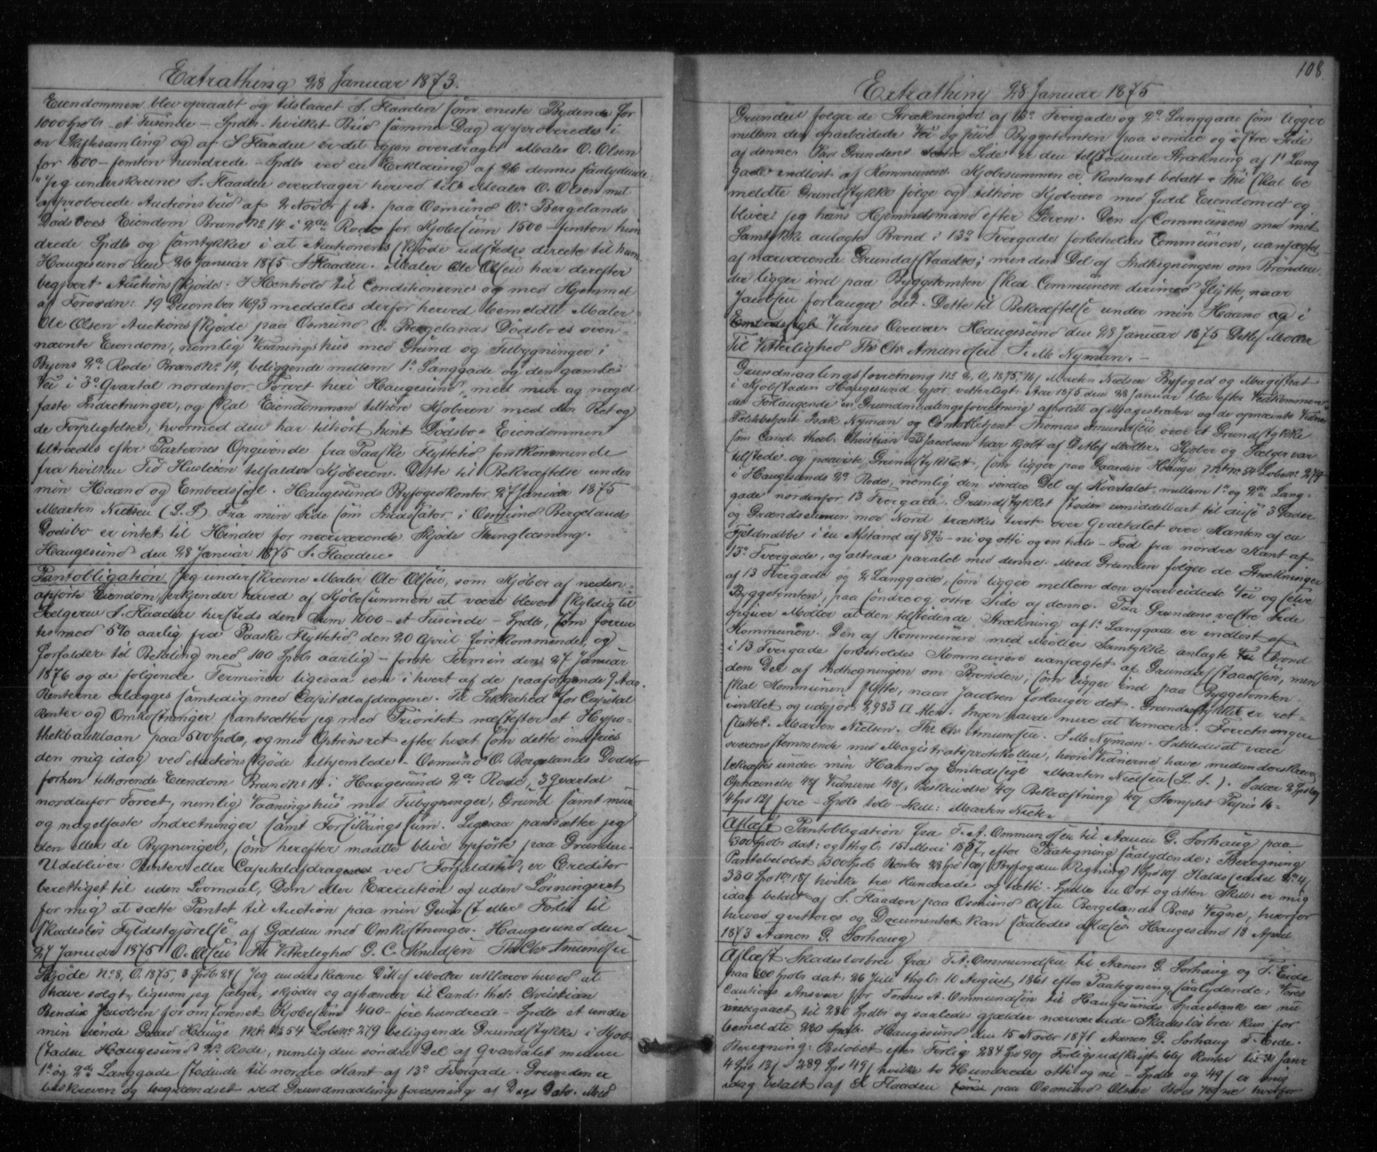 Extrathing 28 Januar 1873.
Eiendommen blev opraabt og tilslaaet S. Haaden som eneste Bydende for
1000 Spds - et Tusende - Spds - hvilket Bud samme Dag approberedes i
en Skiftesamling og af S Haaden er det igjen overdraget Maler O. Olsen
for 1500 - femten hundrede - Spds ved en Erklæring af 26 dennes saalydende:
"Jeg underskrevne S. Haaden overdrager herved til Maler O. Olsen mit
approberede Auctionsbud af 2 Novbr f. A. paa Osmund O. Bergelands
Dødsboes Eiendom Brand No 14 i 2den Rode for Kjøbesum 1500 femten hun
drede Spds og samtykker i at Auctionsskjøde udstedes directe til ham
Haugesund den 26 Januar 1875 S. Haaden. Maler Ole Olsen har derefter
begjært Auctionsskjøde. I Henhold til Conditionerne og med Hjemmel
af Forordn: 19 December 1693 meddeles derfor herved bemeldte Maler
Ole Olsen Auctionsskjøde paa Osmund O. Bergelands Dødsboes oven-
nævnte Eiendom, nemlig Vaaningshus med Grund og Tilbygninger i
Byens 2den Rode Brand No 14, beliggende mellem 1ste Langgade og den gamle
Vei i 3die Qvartal nordenfor Torvet heri Haugesund, med mur og nagel
faste Indretninger, og skal Eiendommen tilhøre Kjøberen med den Ret og
de Forpligtelser, hvormed den har tilhørt hint Dødsbo. Eiendommen
tiltrædes efter Parternes Opgivende fra Paaske Flyttetid førstkommende
fra hvilken Tid Husleien tilfalder Kjøberen. Dette til Bekræftelse under
min Haand og Embedssegl. Haugesunds Byfogedkontor 27 Januar 1875
Marten Nielsen (L.S.) Fra min Side som Incassator i Osmund Bergelands
Dødsbo er intet til Hinder for nærværende Skjøde Thinglæsning.
Haugesund den 28 Januar 1875 S. Haaden.
Pantobligation Jeg underskrevne Maler Ole Olsen, som Kjøber af neden-
anførte Eiendom, erkjender herved af Kjøbesummen at være bleven skyldig til
Sælgeren S. Haaden hersteds den Sum 1000 - et Tusende - Spds, som forren
tes med 5% aarlig fra Paaske Flyttetid den 20 April førstkommende, og
forfalder til Betaling med 100 Spds aarlig - første Termin den 27 Januar
1876 og de følgende Terminer ligesaa een i hvert af de paafølgende 9 Aar.
Renterne erlægges samtidig med Capitalafdragene. Til Sikkerhed for Capital
Renter og Omkostninger pantsætter jeg med Prioritet næstefter et Hypo-
thekbanklaan paa 500 Spds, og med Opteinsret efter hvert som dette indfries
den mig idag ved Auctionsskjøde tilhjemlede - Osmund O. Bergelands Dødsbo
forhen tilhørende Eiendom Brand No 14 i Haugesunds 2den Rode, 3 Qvartal
nordenfor Torvet, nemlig Vaaningshus med Tilbygninger, Grund samt mur
og nagelfaste Indretninger samt Forsikringssum. Ligesaa pantsætter jeg
den eller de Bygninger, som herefter maatte blive opførte paa Grunden.
Udebliver Renter eller Capitalafdragene ved Forfaldstid, er Creditor
berettiget til uden Lovmaal, Dom eller Execution og uden Løsningsret
for mig at sætte Pantet til Auction paa min Gevinst eller Forlis til
skadesløs Fyldestgjørelse af Gjælden med Omkostninger. Haugesund den
27 Januar 1875 O. Olsen Til Vitterlighed G. C. Knudsen Th. Chr. Amundsen
Skjøde No 8, O. 1875, 3 Spds 24 s. Jeg underskrevne Ditlef Møller vitterliggjør herved at
have solgt, ligesom jeg sælger, skjøder og afhænder til Cand: theol: Christian
Bendix Jacobsen for omforenet Kjøbesum 400 - fire hundrede - Spds et under
min eiende Gaard Hauge Mt. No 54 Løbe No 279 beliggende Grundstykke i Kjøb-
staden Haugesunds 2den Rode, nemlig den søndre Del af Qvartalet mellem
1ste og 2den Langgade stødende til nordre Kant af 13de Tvergade. Grunden er
beskreven og begrændset ved Grundmaalingsforretning af Dags Dato. Med
108.
Extrathing 28 Januar 1875
Grunden følger de Strækninger af 13de Tvergade og 2den Langgade som ligger
mellem den oparbeidede Vei og selve Byggetomten paa søndre og østre Side
af denne. Paa Grundens vestre Side er den tilstødende Strækning af 1ste Lang
gade indløst af Kommunen. Kjøbesummen er kontant betalt. Thi skal be
meldte Grundstykke følge og tilhøre Kjøberen med fuld Eiendomsret og
bliver jeg hans Hjemmelsmand efter Loven. Den af Communen med mit
Samtykke anlagte Brønd i 13de Tvergade forbeholdes Communen, uanfægtet
af nærværende Grundafstaaelse; men den Del af Indhegningen om Brønden
der ligger ind paa Byggetomten skal Communen derimod flytte, naar
Jacobsen forlanger det. Dette til Bekræftelse under min Haand og i
Vidners Overvær. Haugesund den 28 Januar 1875 Detlef Møller
Til Vitterlighed Th. Chr. Amundsen I. M. Nyman.
Grundmaalingsforretning No 2, O, 1875, 16 s. Marten Nielsen Byfoged og Magistrat
i Kjøbstaden Haugesund Gjør vitterligt: Aar 1875 den 28 Januar blev efter Vedkommen
des Forlangende en Grundmaalingsforretning afholdt af Magistraten og de opnævnte Vidner
Politibetjent Isak Nyman og Contorbetjent Thomas Amundsen over et Grundstykke
som Cand: theol: Christian B Jacobsen har kjøbt af Detlef Møller. Kjøber og Sælger var
tilstede og paaviste Grundstykket, som ligger paa Gaarden Hauge Mt No 54 Løbe No 279
i Haugesunds 2den Rode, nemlig den søndre Del af Kvartalet mellem 1ste og 2den Lang-
gade nordenfor 13 Tvergade. Grundstykket støder umiddelbart til disse 3 Gader
og Grændselinien mod Nord trækkes tvert over Qvartalet over Kanten af en
Fjeldnabbe i en Afstand af 89 1/2 - ni og otti og en halv - Fod fra nordre Kant af
13de Tvergade, og altsaa paralel med denne. Med Grunden følger de Strækninger
af 13 Tvergade og 2 Langgade, som ligger mellem den oparbeidede Vei og selve
Byggetomten, paa søndre og østre Side af denne. Paa Grundens vestre Side
opgiver Møller at den tilstødende Strækning af 1ste Langgade er indløst af
Kommunen. Den af Kommunen med Møllers Samtykke anlagte Brønd
i 13 Tvergade forbeholdes Kommunen uanfægtet af Grundafstaaelsen, men
den Del af Indhegningen om Brønden, som ligger ind paa Byggetomten
skal Kommunen flytte, naar Jacobsen forlanger det. Grundstykket er ret-
vinklet og udgjør 2983 □ Alen. Ingen havde mere at bemærke. Forretningen
sluttet. Marten Nielsen. Th. Chr. Amundsen. I. M. Nyman. Saaledes at være
overensstemmende med Magistratsprotokollen, hvori Vidnerne have medunderskrevet
bekræftes under min Haand og Embedssegl Marten Nielsen (L. S.). Salær 2 Spd 60 s
Ophævelse 48 s Vidnerne 48 s, Beskrivelse 48 s Bekræftning 48 s Stemplet Papir 16
4 Spd 12 s fire - Spds tolv - Skill: Marten Niels.
Aflæst Pantobligation fra T. A. Ommundsen til Aanen G. Sorhaug paa
300 Spds dat: og thgl: 15 Mai 1867, efter Paategning saalydende: Beregning
Pantebeløbet 300 Spds Renter 28 Spd 108 s, Byfogdens Regning 1 Spd 10 s
330 Spd 118 s hvilke tre hundrede og tretti - Spdlr en Ort og atten Skill: er mig
idag betalt af S. Haaden paa Osmund Olsen Bergelands Boes Vegne, hvorfor
herved qvitteres og Documentet kan saaledes aflæses Haugesund 18 April
1873 Aanen G. Sorhaug
Aflæst Skadesløsbrev fra T. A. Ommundsen til Aanen G. Sorhaug og T. Eide
paa 600 Spds dat: 26 Juli thgl: 10 August 1861 efter Paategning saalydende: Vores
Cautions Ansvar for Tønnes A. Ommundsen til Haugesunds Sparebank er nu
nedgaaet til 280 Spds og saaledes gjælder nærværende Skadesløsbrev kun for
bemeldte 280 Spds. Haugesund den 15 Novbr 1871 Aanen G. Sorhaug T. Eide.
Beregning: Beløbet efter Forlig 284 Spd 90 s Forligsudskrift 66 s Renter til 30 Janr
4 Spd 13 s - 289 Spd 49 s hvilke to Hundrede otti og ni - Spds og 49 s er mig
idag betalt af S Haaden paa Osmund Olsens Boes Vegne hvorfor